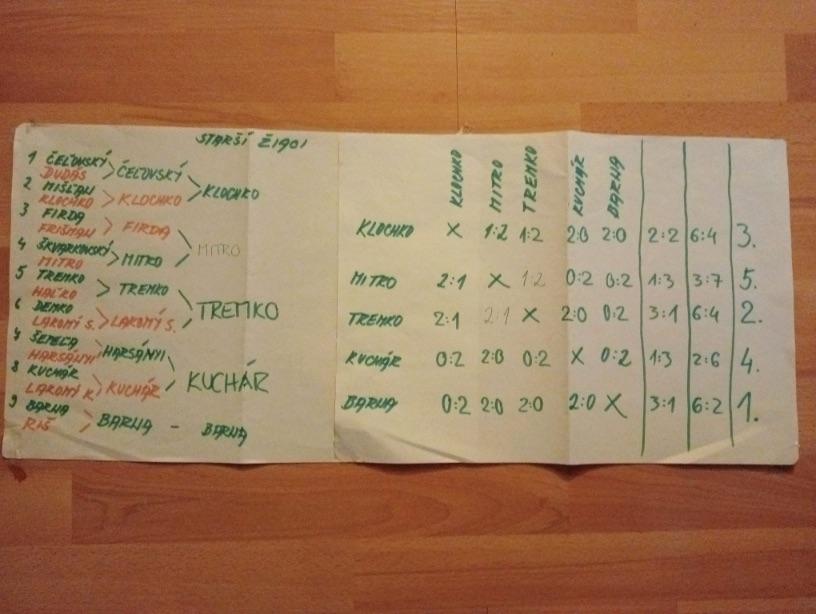 STARŠÍ ŽIACI
1 ČEĽOVSKÝ
DUDÁS
ČEĽOVSKÝ
2 MIŠĽAN
KLOCHKO
KLOCHKO
KLOCHKO
3 FIRDA
FRIŠMAN
FIRDA
4 ŠKVARKOVSKÝ
MITRO
MITRO
MITRO
5 TREMKO
HAĽKO
TREMKO
6 DEMKO
LAKOMÝ S.
LAKOMÝ S.
TREMKO
7
HARSÁNYI
HARSÁNYI
8 KUCHÁR
LAKOMÝ K.
KUCHÁR
KUCHÁR
9 BARNA
RIŠ
BARNA - BARNA
KLOCHKO MITRO TREMKO KUCHÁR BARNA
KLOCHKO X 1:2 1:2 2:0 2:0 2:2 6:4 3.
MITRO 2:1 X 1:2 0:2 0:2 1:3 3:7 5.
TREMKO 2:1 2:1 X 2:0 0:2 3:1 6:4 2.
KUCHÁR 0:2 2:0 0:2 X 0:2 1:3 2:6 4.
BARNA 0:2 2:0 2:0 2:0 X 3:1 6:2 1.